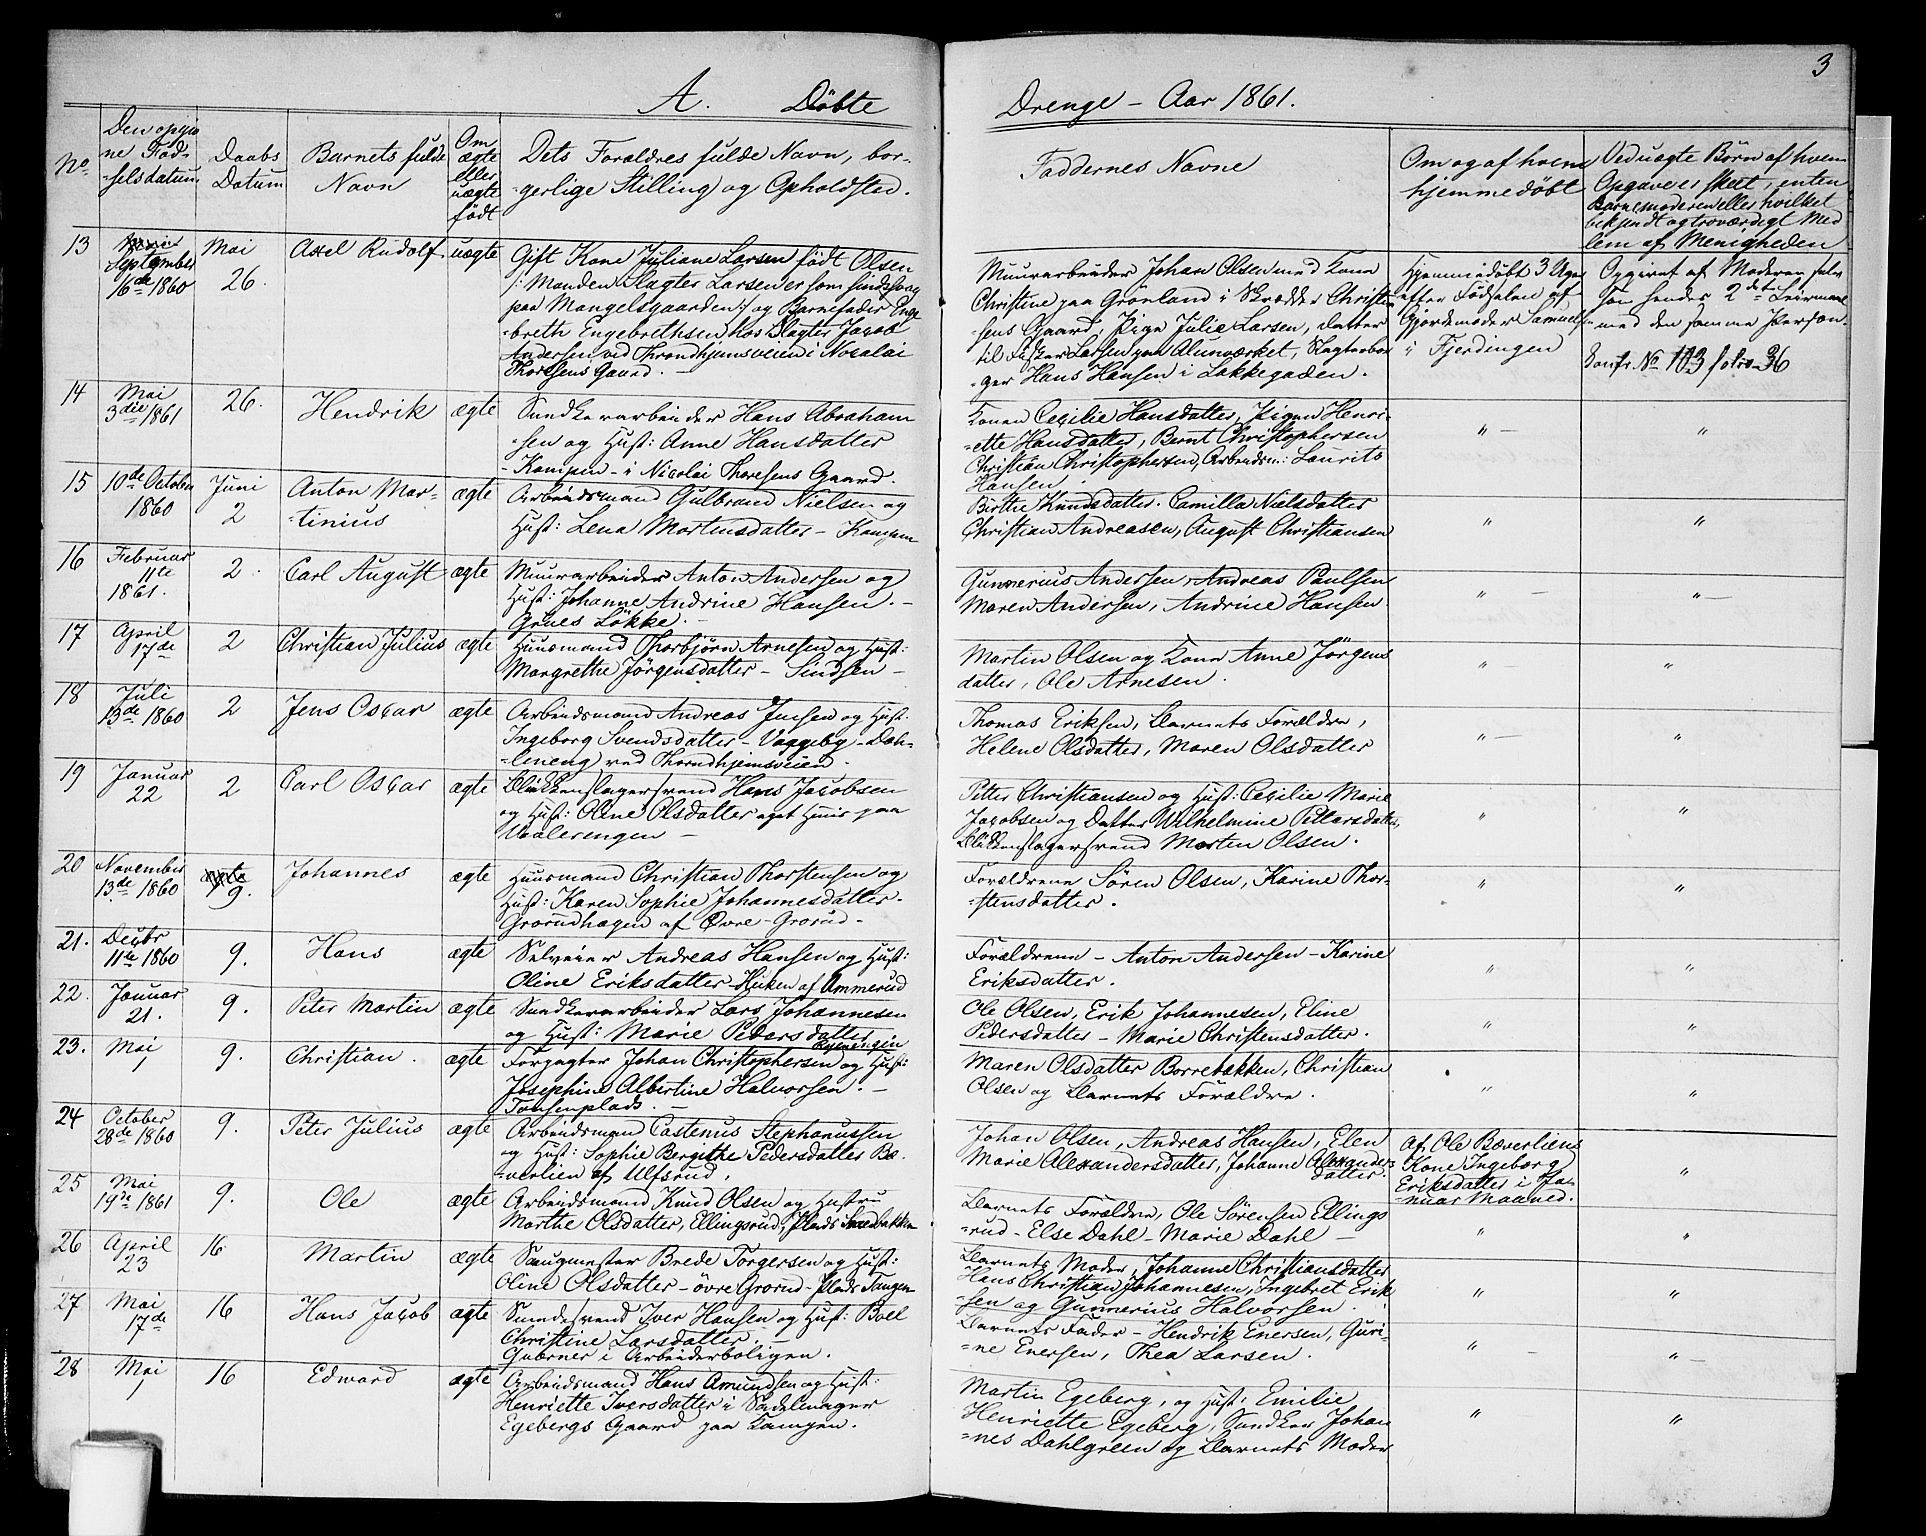 3
A. Döbte Drenge - Aar 1861.
No.
Den opgiv
ne Fød-
-selsdatum
Daabs
Datum
Barnets fulde
Navn
Om
ægte
eller
uægte
født
Dets Forældres fulde Navn, bor-
-gerlige Stilling og Opholdsted.
Faddernes Navne
Om og af hvem
hjemmedöbt
Ved uægte Börn af hvem
Opgave er skeet, enten
Barnemoderen eller hvilket
bekjendt og troværdigt Med
lem af Menigheden
13
September
16de 1860
Mai
26.
Axel Rudolf
uægte
Gift Kone Juliane Larsen født Olsen
/: Manden Slagter Larsen er som sindssyg
paa Mangelsgaarden :/ og Barnefader Enge
-breth Engebrethsen hos Slagter Jacob
Andersen ved Throndhjemsveien i Nicolai
Thoresens Gaard. -
Muurarbeider Johan Olsen med Kone
Christine paa Grönland i Skrædder Christen
sens Gaard, Pige Julie Larsen, datter
til Fisker Larsen paa Alunværket, Slagterbor
-ger Hans Hansen i Lakkegaden.
Hjemmedöbt 3 Uger
efter Födselen af
Gjordemoder Samuelsen
i Fjerdingen
Opgivet af Moderen selv
som hendes 2det Leiermaal
med den samme Person.
Confr. No 113 folio 36
14
Mai
3die 1861
26.
Hendrik
ægte
Snedkerarbeider Hans Abraham
sen og Hust: Anne Hansdatter
- Kampen - i Nicolai Thoresens Gaard.
Konen Cecilie Hansdatter, Pigen Henri-
-ette Hansdatter, Bernt Christophersen
Christian Christophersen, Arbeidsm: Laurits
Hansen.
" -
"
15
10de October
1860
Juni
2
Anton Mar-
-tinius
ægte
Arbeidsmand Gulbrand Nielsen og
Hust: Lena Mortensdatter - Kampen
Birthe Knudsdatter. Camilla Nielsdatter
Christian Andreasen, August Christiansen
"
"
16
Februar
11te
1861.
2.
Carl August
ægte
Muurarbeider Anton Andersen og
Hust: Johanne Andrine Hansen. -
Grues Løkke. -
Gunnerius Andersen, Andreas Paulsen
Maren Andersen, Andrine Hansen
" -
" -
17
April
17de
2
Christian Julius
ægte
Huusmand Thorbjörn Arnesen og Hust:
Margrethe Jörgensdatter - Sindsen -
Martin Olsen og Kone Anne Jörgens
datter, Ole Arnesen.
" -
"
18
Juli
13de 1860
2
Jens Oscar
ægte
Arbeidsmand Andreas Jensen og Hust:
Ingeborg Svendsdatter - Vaggeby - Dæh-
-leneng ved Throndhjemsveien.
Thomas Eriksen, Barnets Forældre,
Helene Olsdatter, Maren Olsdatter
" -
"
19
Januar
22
2
Carl Oscar
ægte
Blikkenslagersvend Hans Jacobsen
og Hust: Oline Olsdatter eget Huus paa
Vaalerengen -
Petter Christiansen og Hust: Cecilie Marie
Jacobsen og Datter Wilhelmine Pettersdatter,
Blikkenslagersvend Morten Olsen.
"
"
20
November
13de 1860
9.
Johannes
ægte
Huusmand Christian Thorstensen og
Hust: Karen Sophie Johannesdatter.
Grorudhagen af Øvre-Grorud -
Forældrene Sören Olsen, Karine Thor-
-stensdatter.
"
"
21.
Decbr
11te 1860
9.
Hans
ægte
Selveier Andreas Hansen og Hust:
Oline Eriksdatter - Huken af Ammerud
Forældrene - Anton Andersen - Karine
Eriksdatter.
"
"
22.
Januar
21.
9.
Peter Martin
ægte
Snedkerarbeider Lars Johannesen
og Hust: Marie Pedersdatter
Ole Olsen, Erik Johannesen, Eline
Pedersdatter - Marie Christensdatter.
"
"
23.
Mai
1
9.
Christian.
ægte
Forpagter Johan Christophersen og Hust:
Josephine Albertine Halvorsen. -
Tonsenplads. -
Maren Olsdatter Borrebækken, Christian
Olsen og Barnets Forældre.
"
"
24
October
28de 1860
9.
Peter Julius
ægte
Arbeidsmand Castenus Stephanussen
og Hust: Sophie Bergithe Pedersdatter Bæ-
-verlien af Ulfsrud,
Johan Olsen, Andreas Hansen, Elen
Marie Alexandersdatter, Johanne Alexanders
datter.
Af Ole Bæverliens
Kone Ingeborg
Eriksdatter i Ja-
-nuar Maaned.
"
25
Mai
19de 1861
9.
Ole
ægte
Arbeidsmand Knud Olsen og Hustru
Marthe Olsdatter, Ellingsrud, Plads Smedbakken
Barnets Forældre, Ole Sörensen Ellings
-rud - Else Dahl - Marie Dahl -
"
"
26
April
23
16
Martin
ægte
Saugmester Brede Torgersen og Hust:
Oline Olsdatter - övre Grorud - Plads Tangen
Barnets Moder, Johanne Christiansdatter
Hans Christian Johannesen, Ingebret Erik
-sen og Gunnerius Halvorsen.
"
"
27
Mai
17de
16
Hans Jacob
ægte
Smedesvend Iver Hansen og Hust: Boel
Christine Larsdatter. -
Gubener i Arbeiderboligen.
Barnets Fader - Hendrik Enersen, Guri-
-ne Enersen, Thea Larsen.
" -
" -
28
Mai
1
16
Edward
ægte
Arbeidsmand Hans Amundsen og Hust:
Henriette Iversdatter i Sadelmager
Egebergs Gaard paa Kampen.
Martin Egeberg, og Hust: Emilie
Henriette Egeberg, Snedker Johan
-nes Dahlgreen og Barnets Moder
"
"